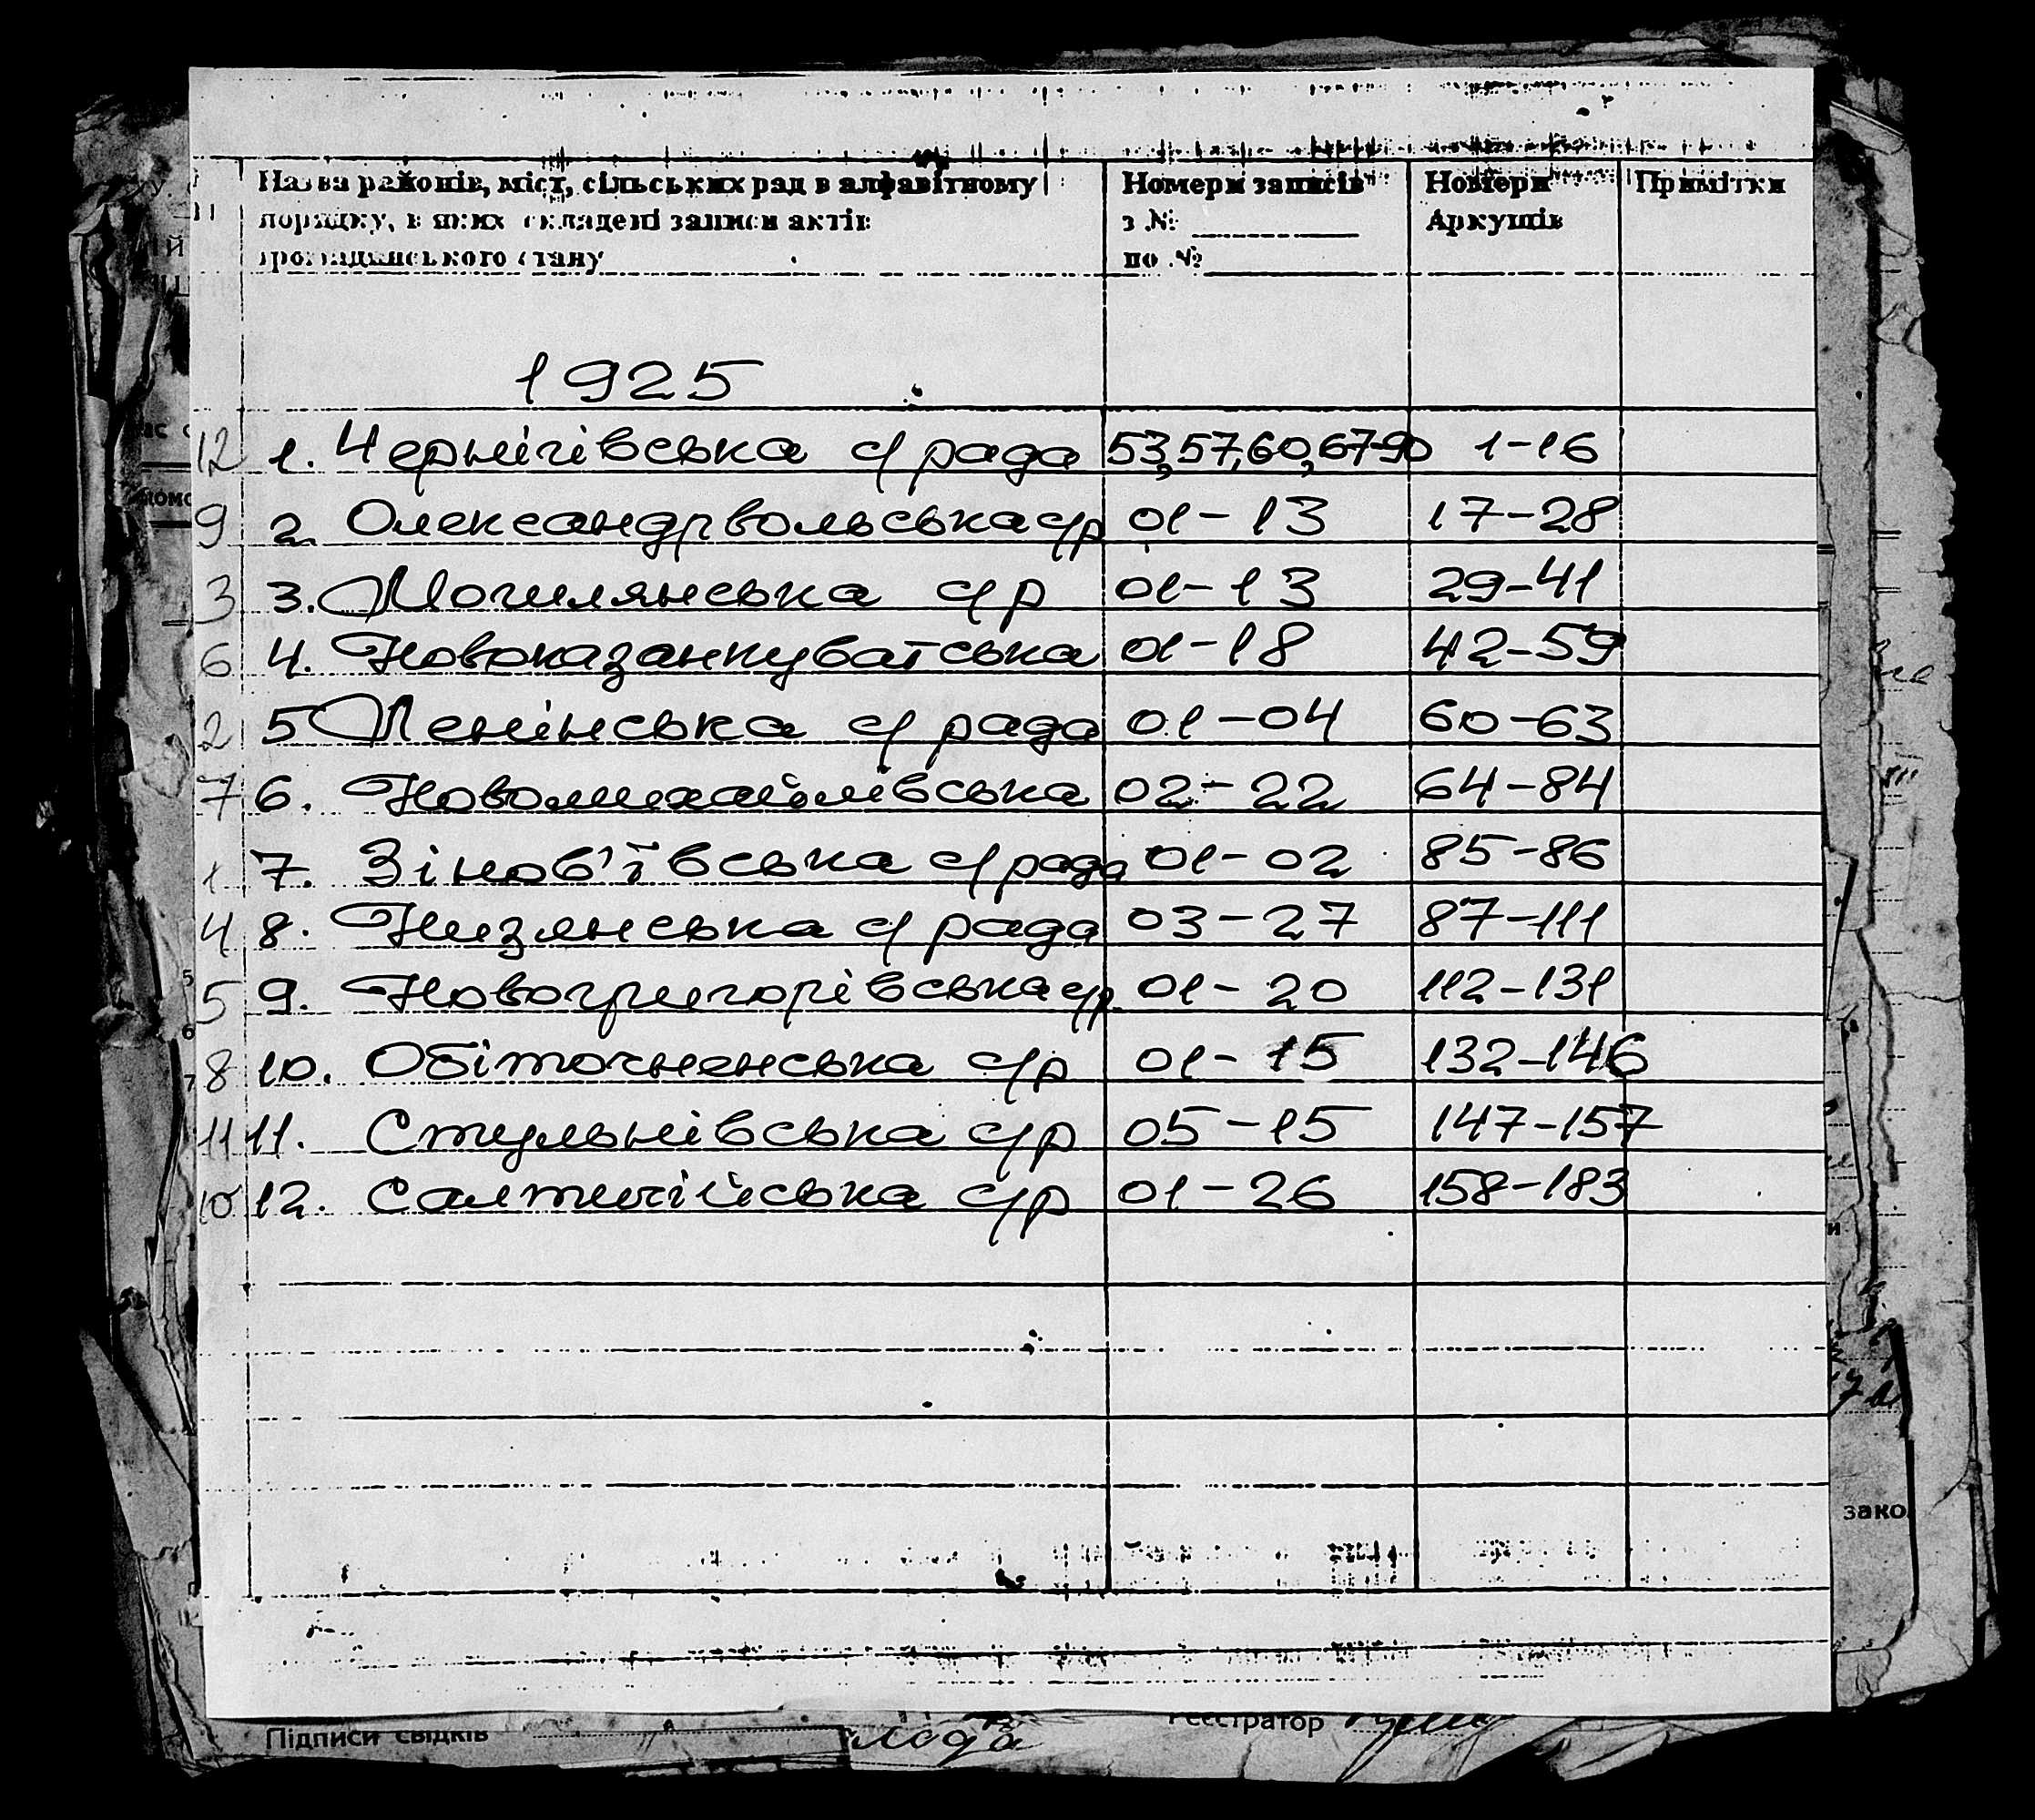 Назва районів, міст, сільських рад в алфавітному
порядку, в яких складені записи актів
громадянського стану
Номери записів
з №
по №
Номери
Аркушів
Примітки
1925
12 1. Чернігівська с/рада 53,57,60,67-90 1-16
9 2. Олександрвольська с/р 01-13 17-28
3 3. Могилянська с/р 01-13 29-41
6 4. Новоказанкуватська 01-18 42-59
2 5 Ленінська с/рада 01-04 60-63
7 6. Новомихайлівська 02-22 64-84
1 7. Зінов'ївська с/рада 01-02 85-86
4 8. Низянська с/рада 03-27 87-111
5 9. Новогригорівська с/р 01-20 112-131
8 10. Обіточненська с/р 01-15 132-146
11 11. Стульнівська с/р 05-15 147-157
10 12. Салтичійська с/р 01-26 158-183
зако
Підписи свідків
Реєстратор